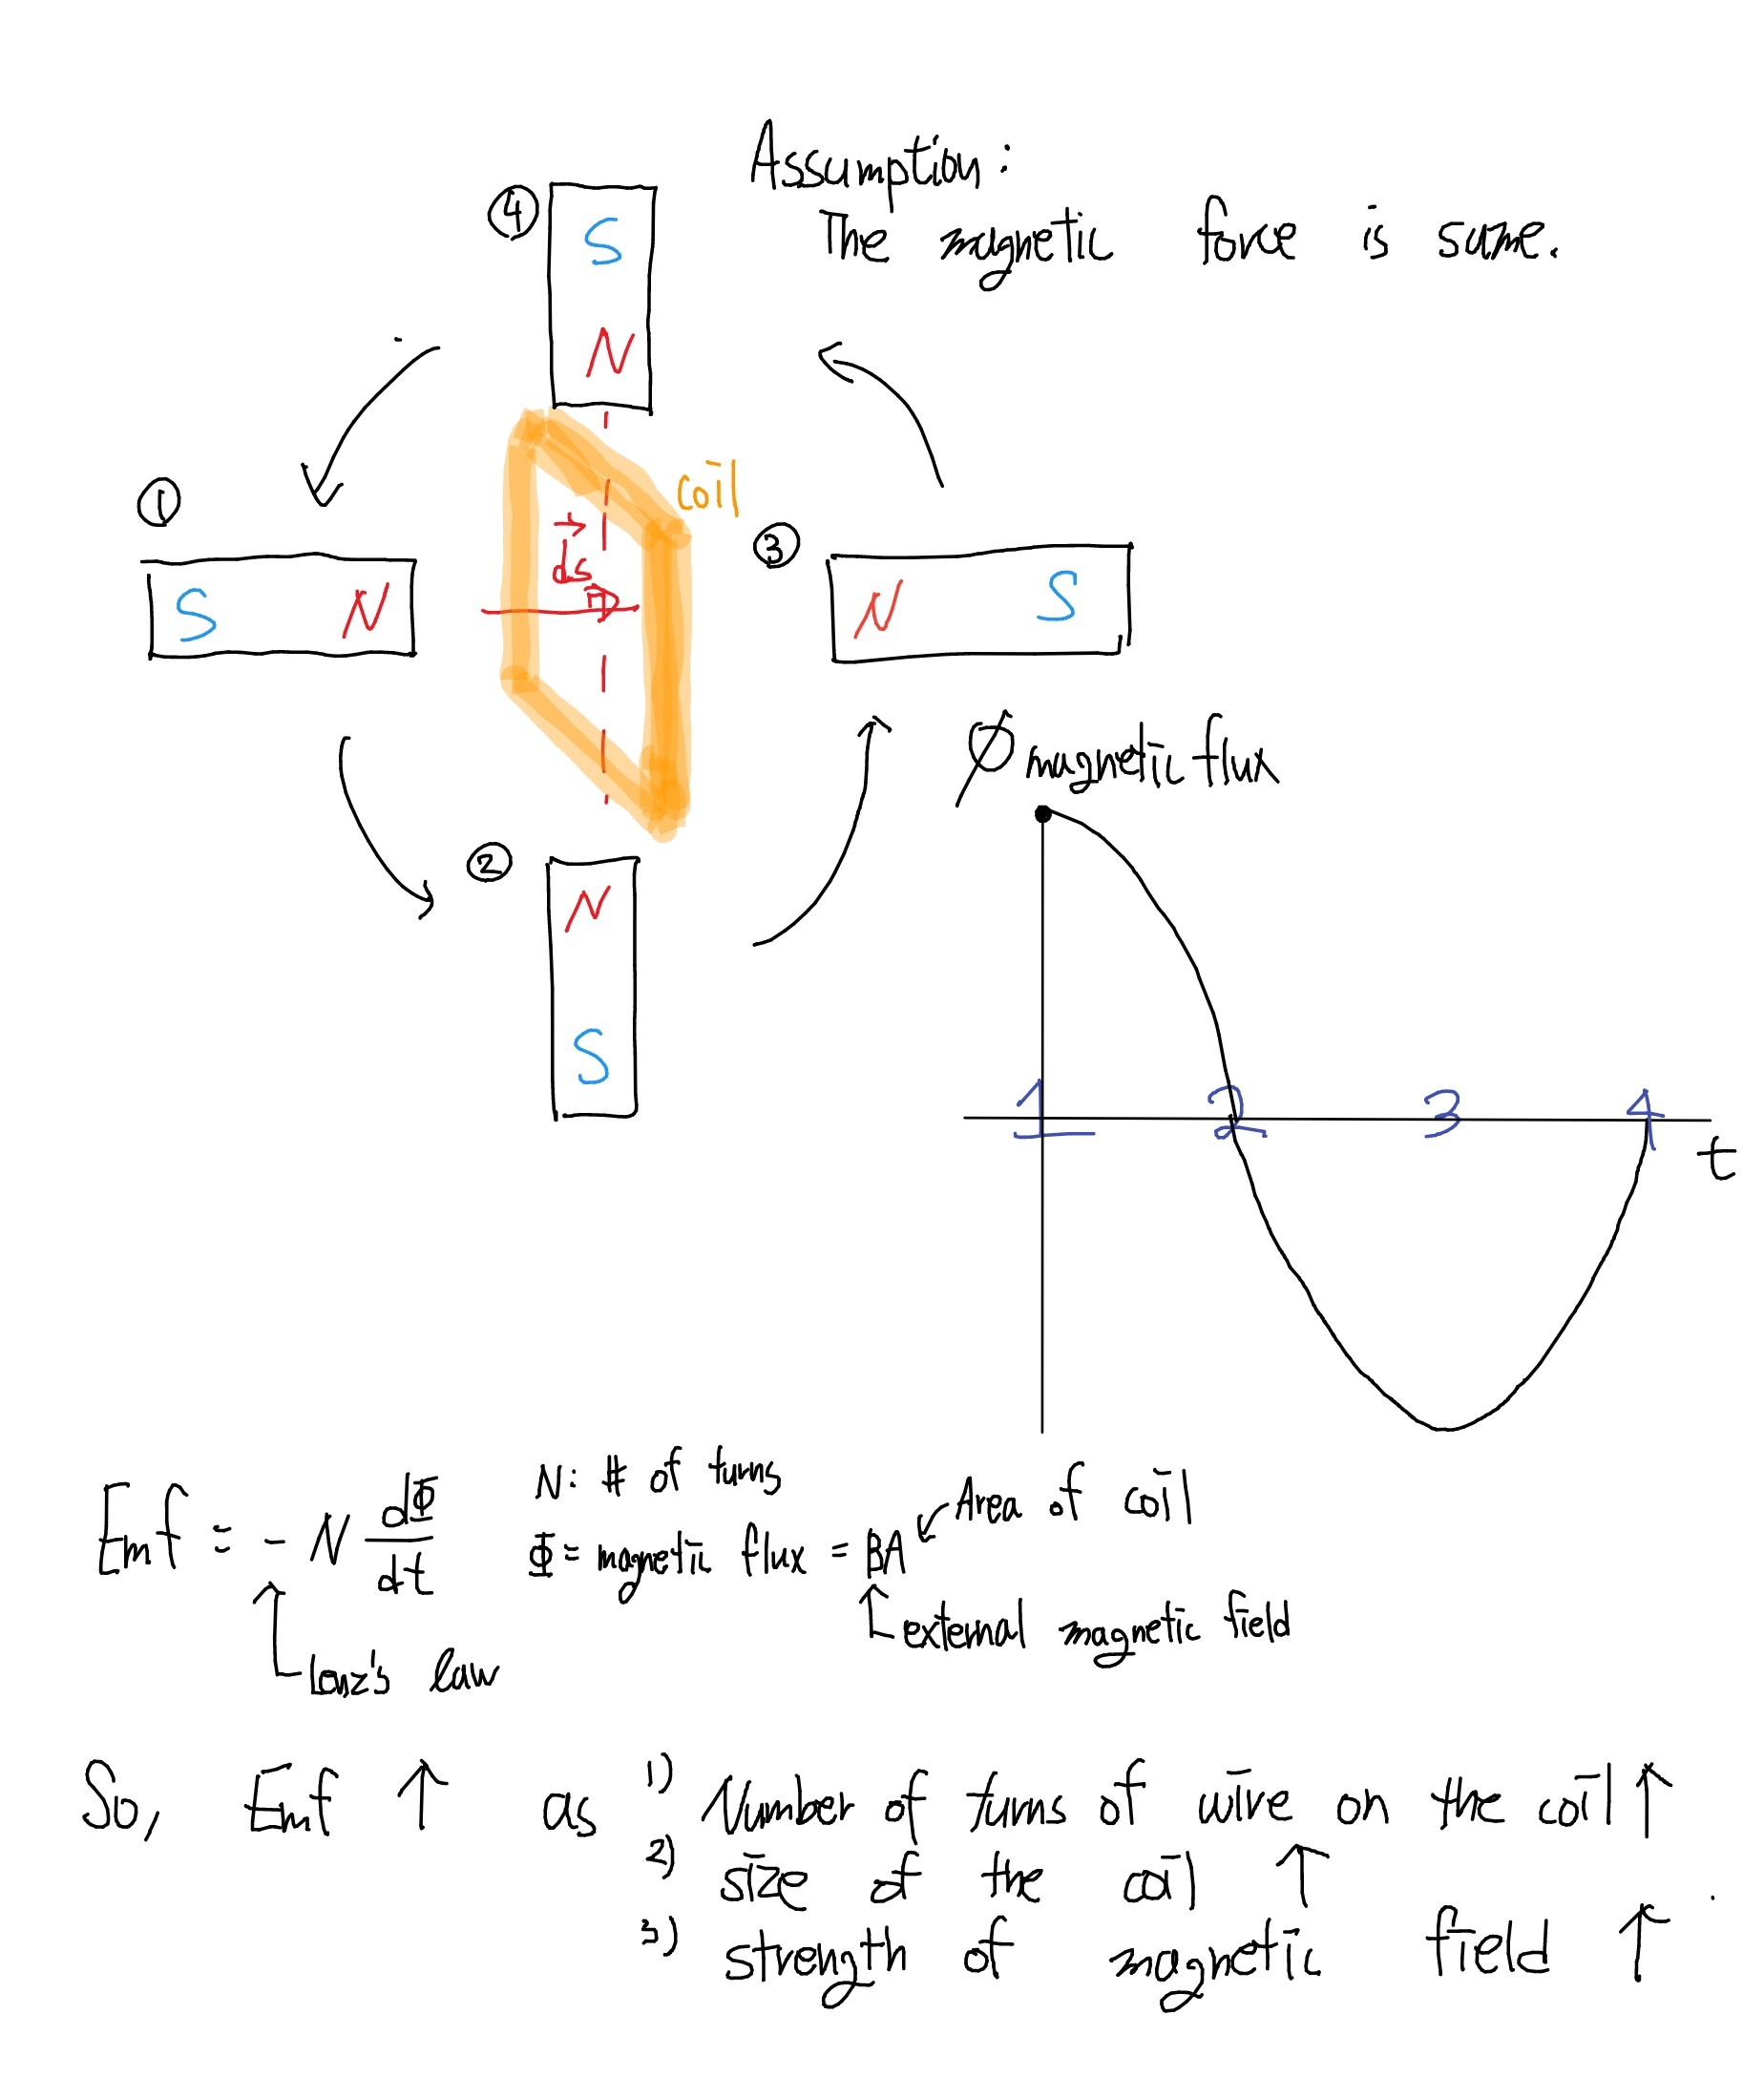 Assumption:
The magnetic force is same.
④
S
N
coil
①
S N
ds
③
N S
②
N
S
Ø magnetic flux
1 2 3 4
t
Emf = - N dΦ/dt
Lenz's law
N: # of turns
Φ = magnetic flux = BA
Area of coil
external magnetic field
So, Emf ↑ as 1) Number of turns of wire on the coil ↑
2) size of the coil ↑
3) strength of magnetic field ↑